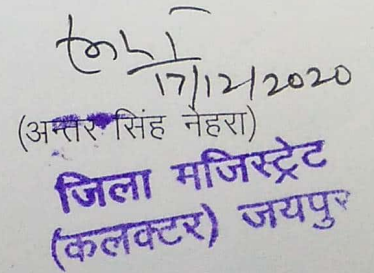 17/12/2020
(अन्तर सिंह नेहरा)
जिला मजिस्ट्रेट
(कलक्टर) जयपुर